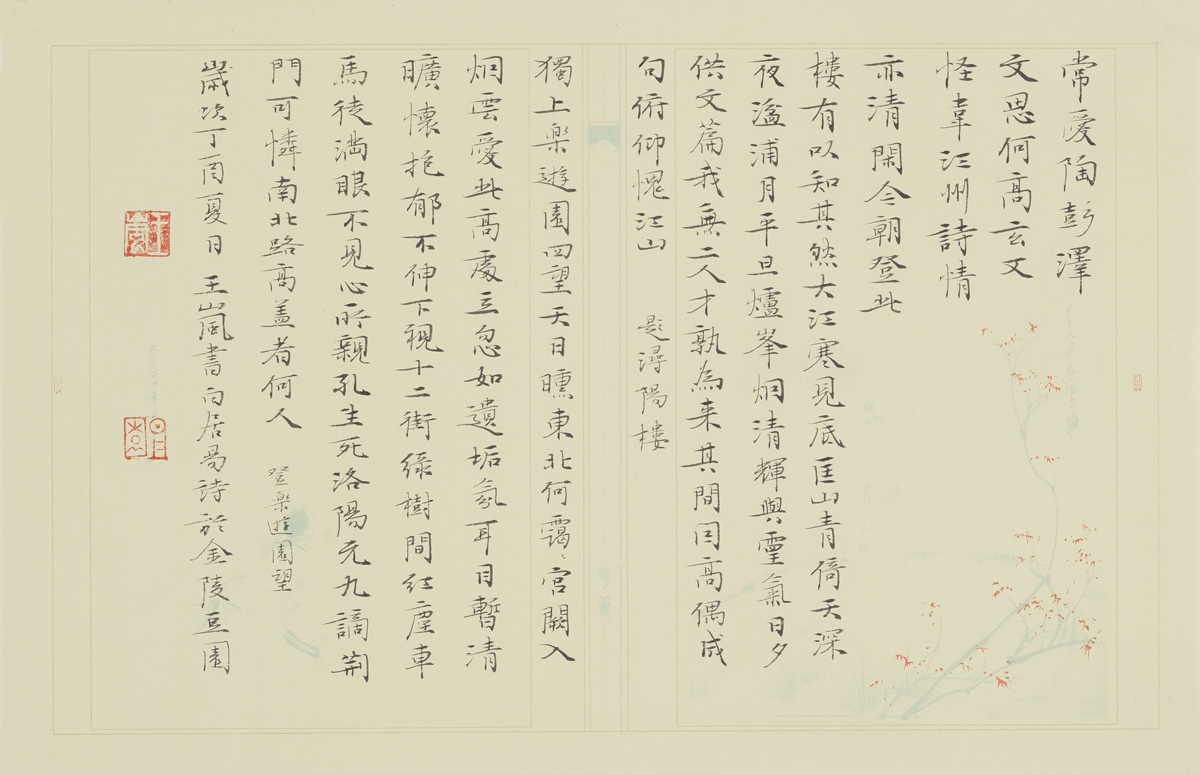 常愛陶彭澤
文思何高玄又
怪韋江州詩情
亦清閑今朝登此
樓有以知其然大江寒見底匡山青倚天深
夜湓浦月平旦爐峯烟清輝與靈氣日夕
供文篇我無二人才孰為来其間因高偶成
句俯仰愧江山 題潯陽樓
獨上楽遊園四望天日曛東北何靄〻宮闕入
烟雲愛此高處立忽如遺垢氛耳目暫清
曠懷抱郁不伸下視十二街綠樹間紅塵車
馬徒滿眼不見心所親孔生死洛陽元九謫荆
門可憐南北路高盖者何人 登楽遊園望
歲次丁酉夏日 王山嵐書白居易詩於金陵豆園